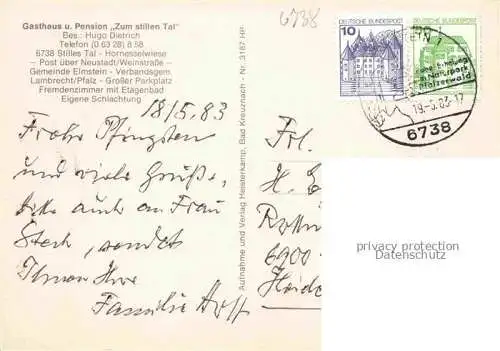 Gasthaus u. Pension „Zum stillen Tal"
Bes.: Hugo Dietrich
Telefon (0 63 28) 8 58
6738 Stilles Tal - Hornesselwiese
– Post über Neustadt/Weinstraße –
Gemeinde Elmstein - Verbandsgem.
Lambrecht/Pfalz - Großer Parkplatz
Fremdenzimmer mit Etagenbad
Eigene Schlachtung
6738
18/5.83
Frohe Pfingsten
und viele Grüße,
bitte auch an Frau
sendet
Ihnen Ihre
Familie
Aufnahme und Verlag Heisterkamp, Bad Kreuznach - Nr. 3187 HP
10
DEUTSCHE BUNDESPOST
DEUTSCHE BUNDESPOST
STEIN 1
Naturpark
Pfälzerwald
19.-5.83-17
6738
Frl.
H.
6900
privacy protection
Datenschutz